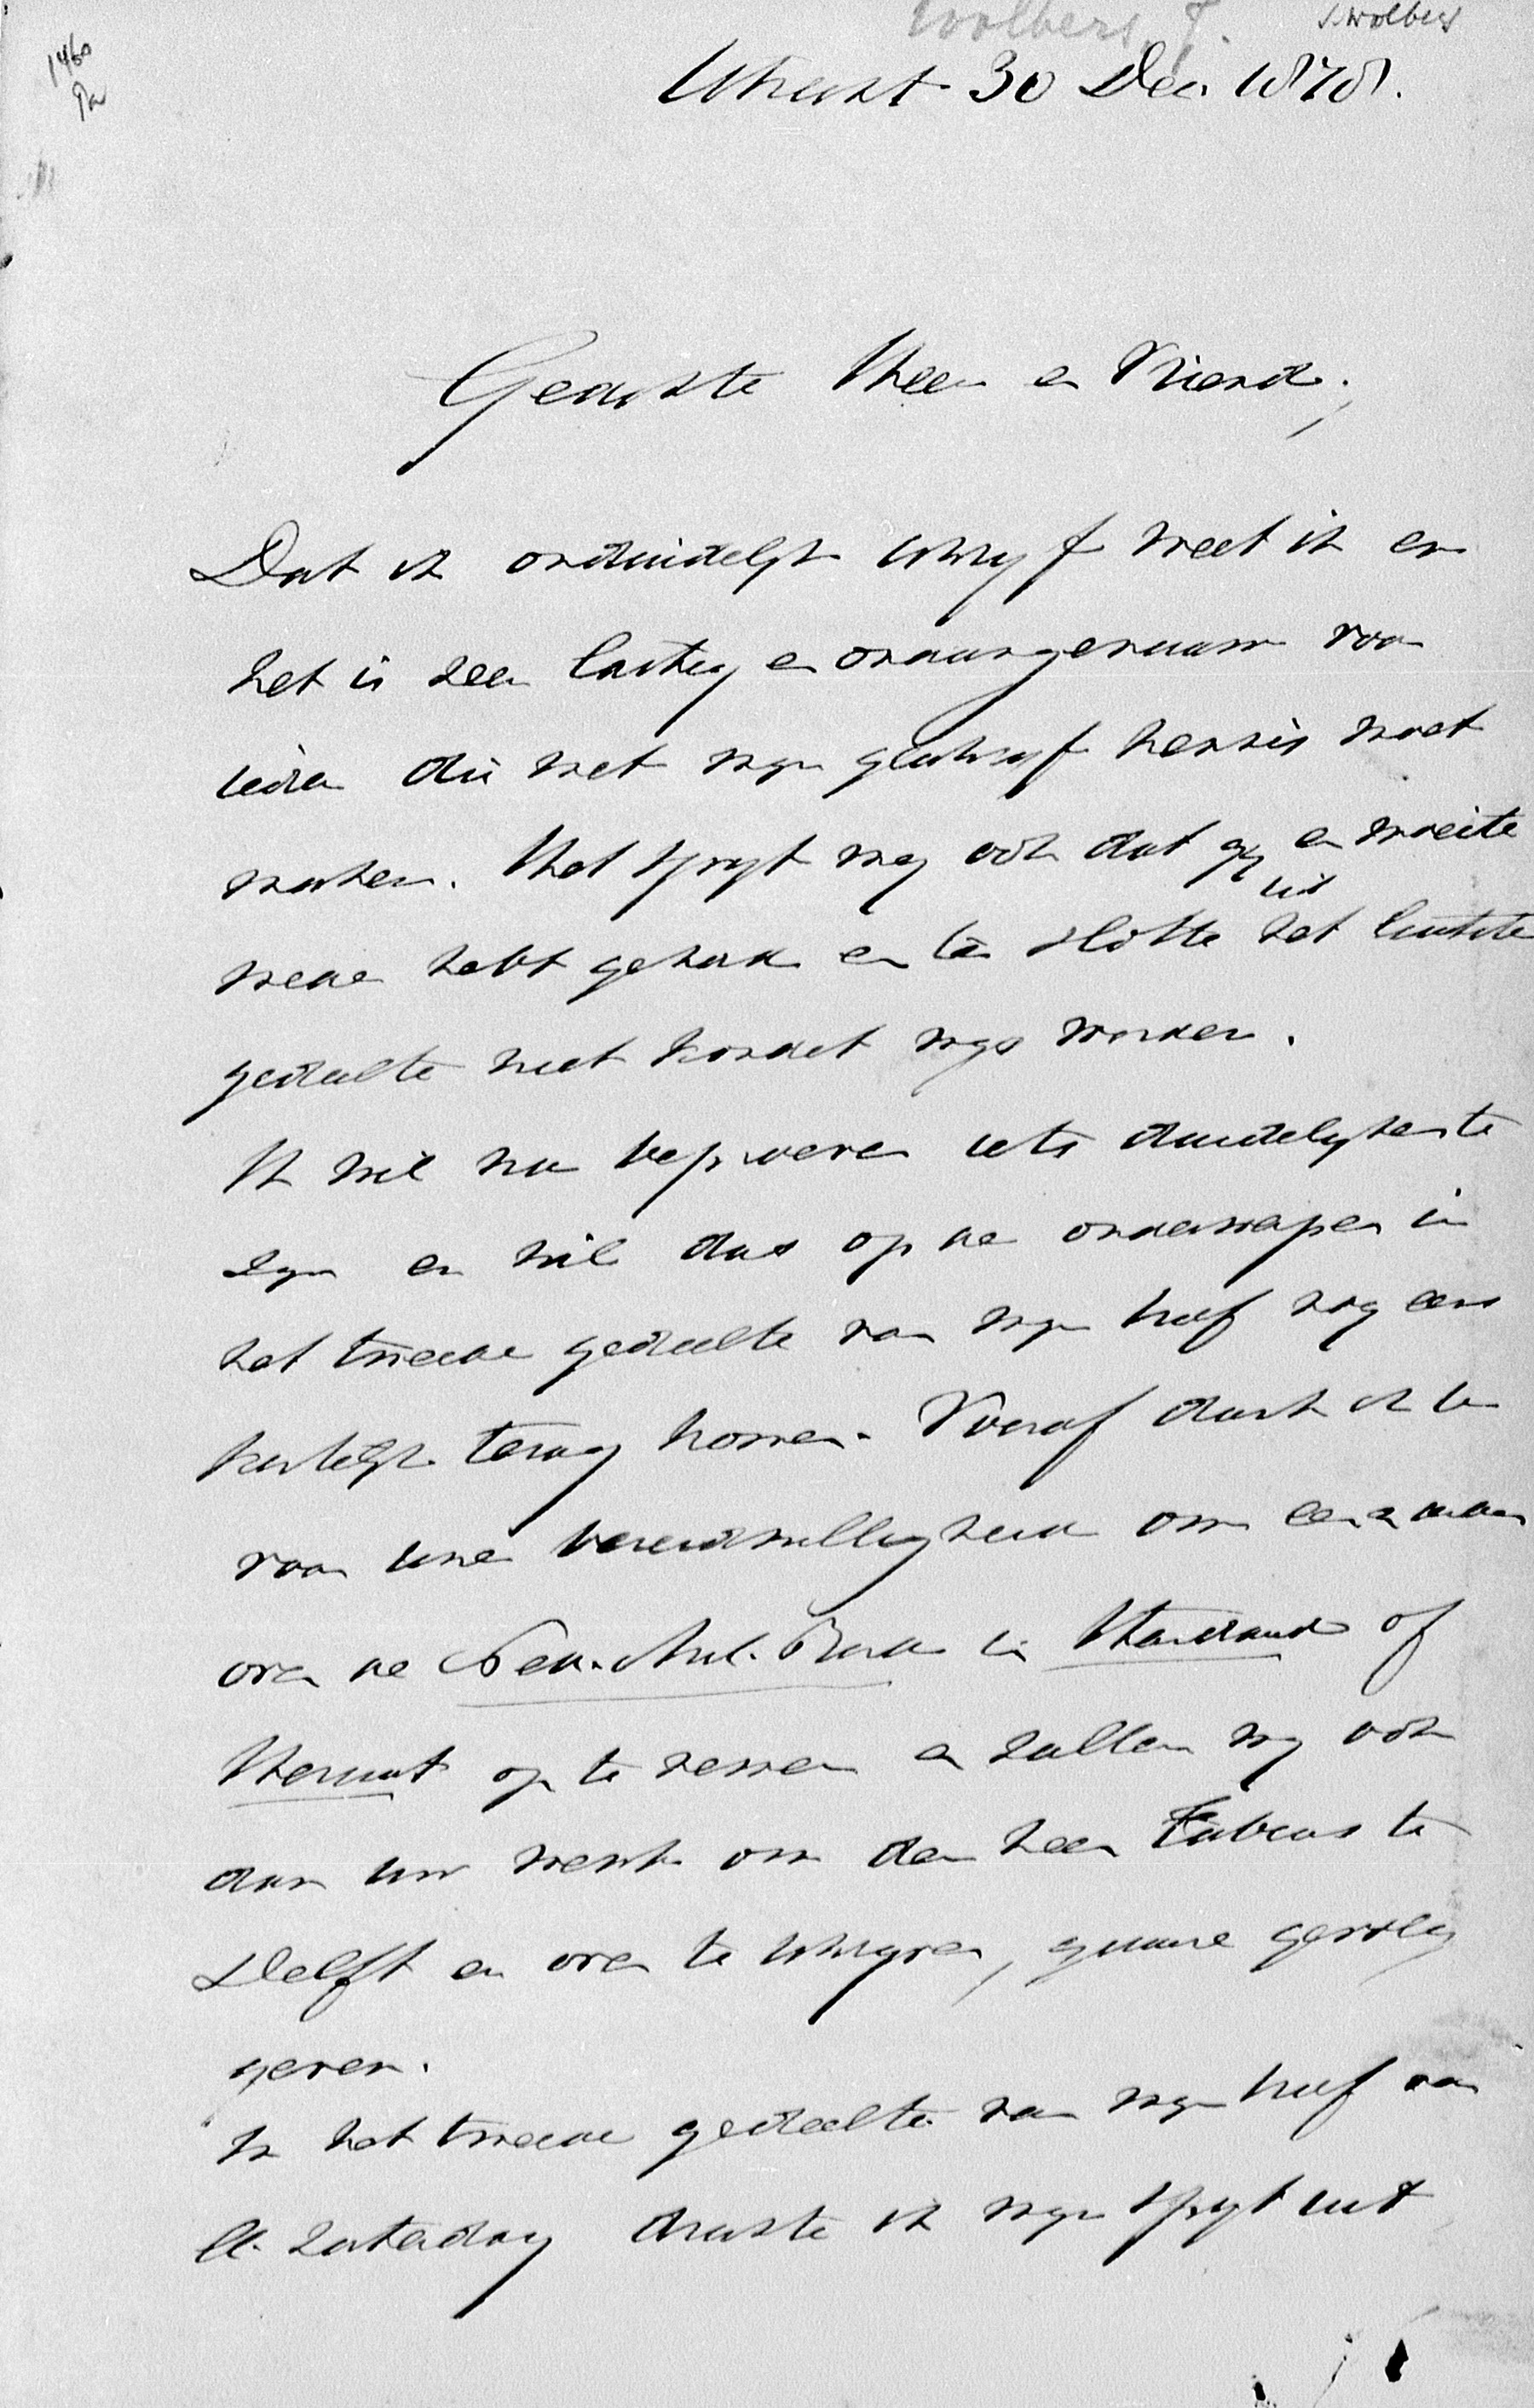 Wolbers, J.
J. Wolbers
1460
Utrecht 30 Dec. 1878.
Geachte Heer en Vriend,
Dat ik onduidelijk schrijf weet ik en
het is zeer lastig en onaangenaam voor
ieder die met mijn geschrijf kennis moet
maken. Het spijt mij ook dat gij er moeite
mede hebt gehad en ten slotte uit het laatste
gedeelte niet kondet wijs worden.
Ik wil nu beproeven iets duidelijker te
zijn en wil dus op de onderwerpen in
het tweede gedeelte van mijn brief nog eens
kortelijk terug komen. Vooraf dank ik U
voor uwe bereidwilligheid om een en ander
over de Ned. Aml. Bond in Standaard of
Heraut op te nemen en zullen wij ook
aan uw wenk om den heer Fabius te
Delft er over te schrijven, gaarne gevolg
geven.
In het tweede gedeelte van mijn brief van
ll. Zaterdag drukte ik mijn spijt uit